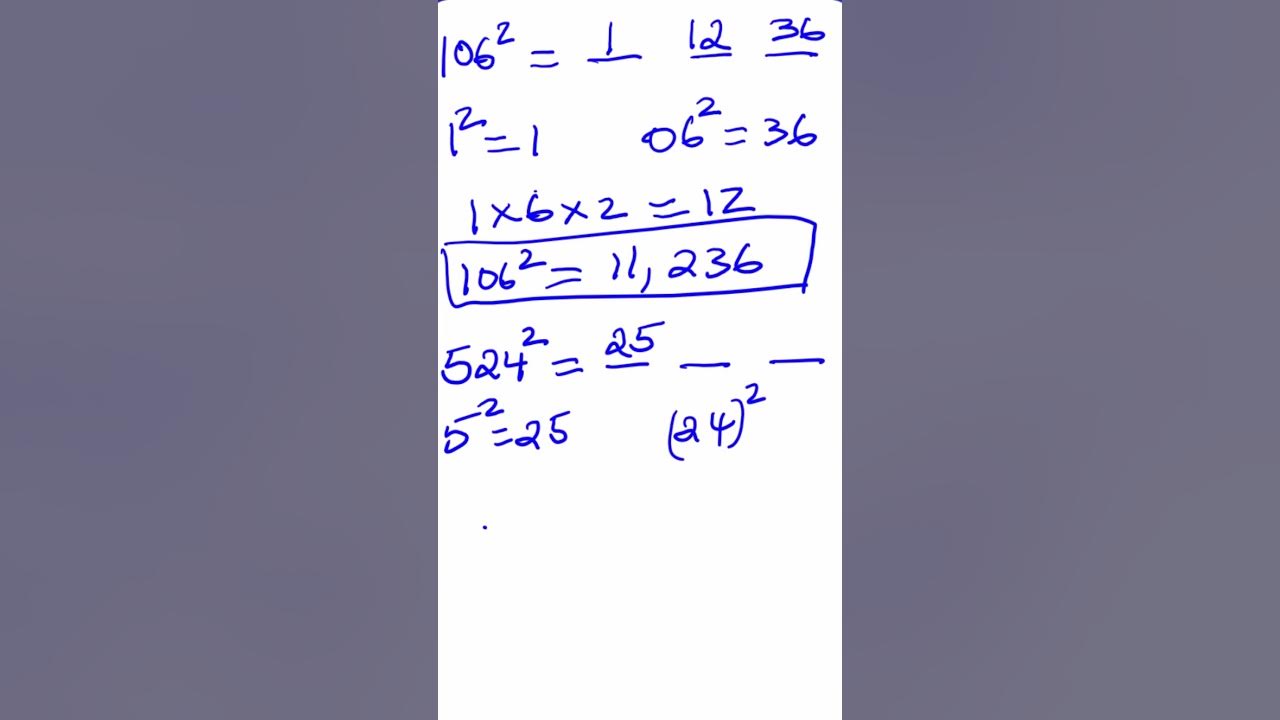 106² = 1 12 36
1² = 1 06² = 36
1 × 6 × 2 = 12
106² = 11,236
524² = 25 __ __
5² = 25 (24)²